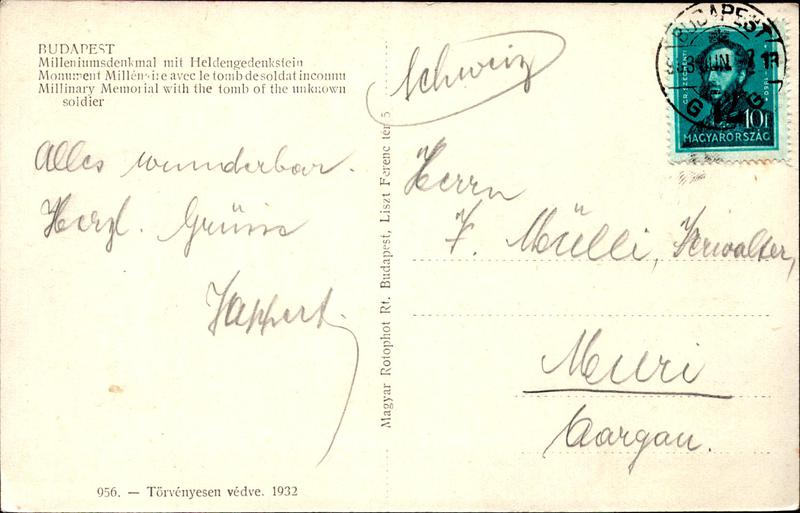 BUDAPEST
Milleniumsdenkmal mit Heldengedenkstein
Monument Millénaire avec le tomb de soldat inconnu
Millinary Memorial with the tomb of the unknown
soldier
Alles wunderbar.
Herzl. Grüsse
956. — Törvényesen védve. 1932
Magyar Rotophot Rt. Budapest, Liszt Ferenc tér 5
Schweiz
Herrn
F. Mülli, Verwalter,
Muri
Aargau.
BUDAPEST
JUN.
GR. SZÉCHENYI
10f
MAGYARORSZÁG